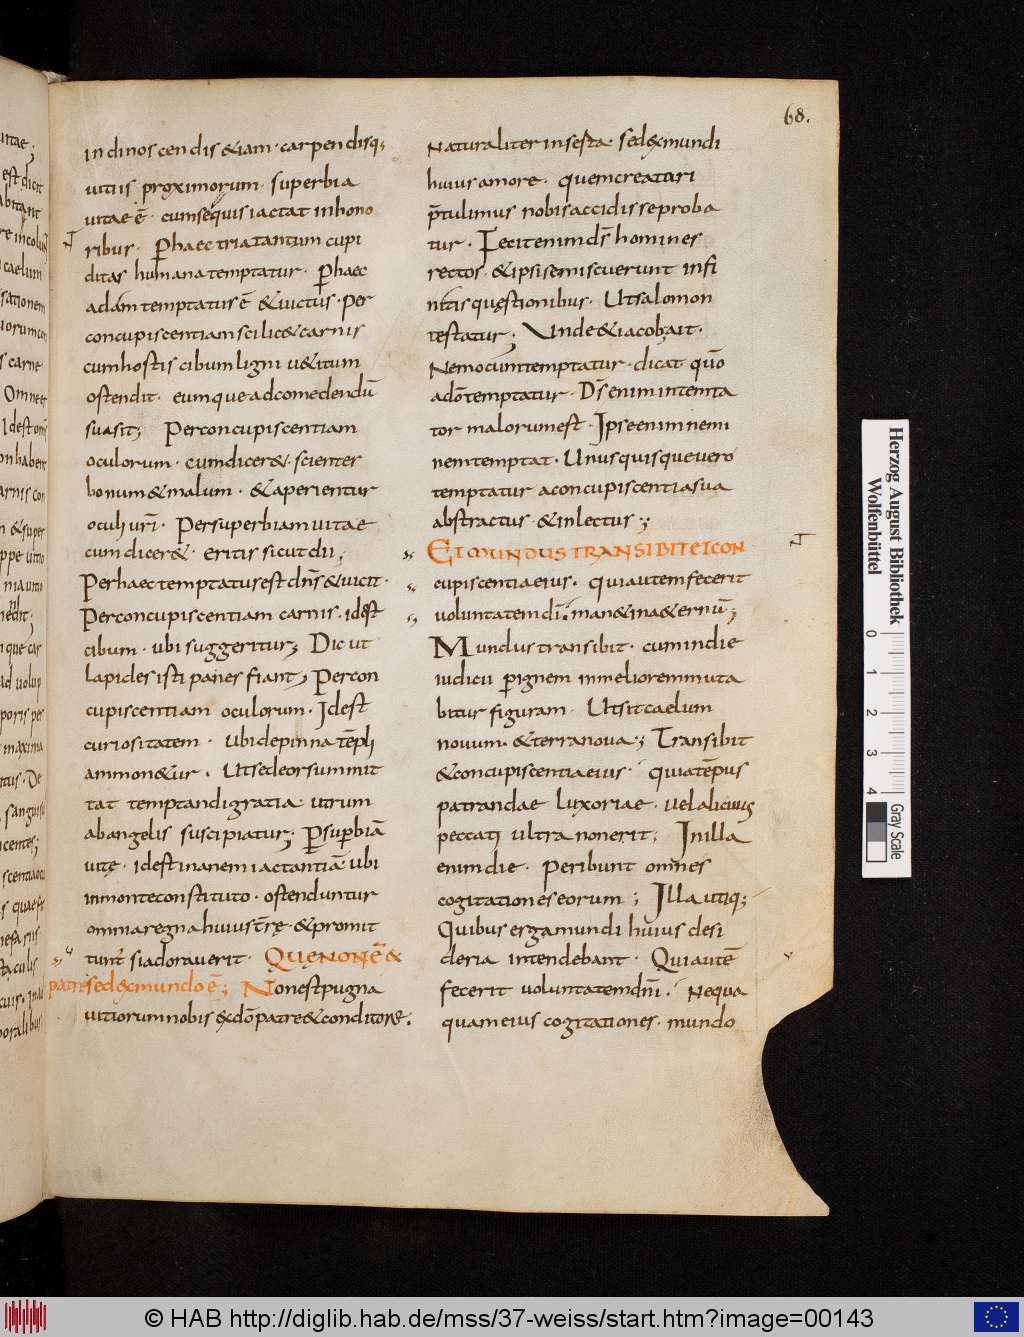 68.
in dinoscendis &iam · carpendisq;
uitiis proximorum · superbia
uitae ē · cum se quis iactat in hono
ribus · P haec tria tantum cupi
ditas humana temptatur · P haec
adam temptatus ē & uictus · Per
concupiscentiam scilic& carnis
cum hostis cibum ligni u&itum
ostendit · eumque ad comedendū
suasit; Per concupiscentiam
oculorum · cum dicer& · scienter
bonum & malum · & aperientur
oculi urī · Per superbiam uitae
cum dicer& · eritis sicut dii;
Per haec temptatus est dn̄s & uicit ·
Per concupiscentiam carnis · idest
cibum · ubi suggeritur; Dic ut
lapides isti panes fiant; Per con
cupiscentiam oculorum · Idest
curiositatem · Ubi de pinna tēpli
ammon&ur · Ut sedeorsum mit
tat temptandi gratia utrum
ab angelis suscipiatur; P supbiā
uitę · idest inanem iactantiā ubi
in monte constituto · ostenduntur
omnia regna huius tr̄ę · & promit
tunt̄ si adorauerit · QUĘ NON Ē &
patre sed ex mundo ē; Non est pugna
uitiorum nobis ex dō patre & conditore.
Naturaliter insesta sed ex mundi
huius amore · quem creaturi
p̄tulimus nobis accidisse proba
tur · Fecit enim ds̄ homines
rectos · & ipsi se miscuerunt infi
nitis quęstionibus · Ut salomon
testatur; Unde & iacob ait ·
Nemo cum temptatur · dicat qūo
a dō temptatur · Ds̄ enim intemta
tor malorum est · Ipse enim nemi
nem temptat · Unusquisque uero
temptatur a concupiscentia sua
abstractus · & inlectus;
ET MUNDUS TRANSIBIT ET CON
cupiscentia eius · qui autem fecerit
uoluntatem dī · man& in a&ernū;
Mundus transibit · cum in die
iudicii p ignem in meliorem muta
bitur figuram · Ut sit caelum
nouum · & terra noua; Transibit
& concupiscentia eius · quia tēpus
patrandae luxoriae · uel alicuius
peccati ultra non erit; In illa
enim die · Peribunt omnes
cogitationes eorum; Illa utiq;
Quibus erga mundi huius desi
deria intendebant · Qui autē
fecerit uoluntatem dn̄i · Nequa
quam eius cogitationes · mundo
Herzog August Bibliothek
Wolfenbüttel
0 1 2 3 4
Gray Scale
© HAB http://diglib.hab.de/mss/37-weiss/start.htm?image=00143